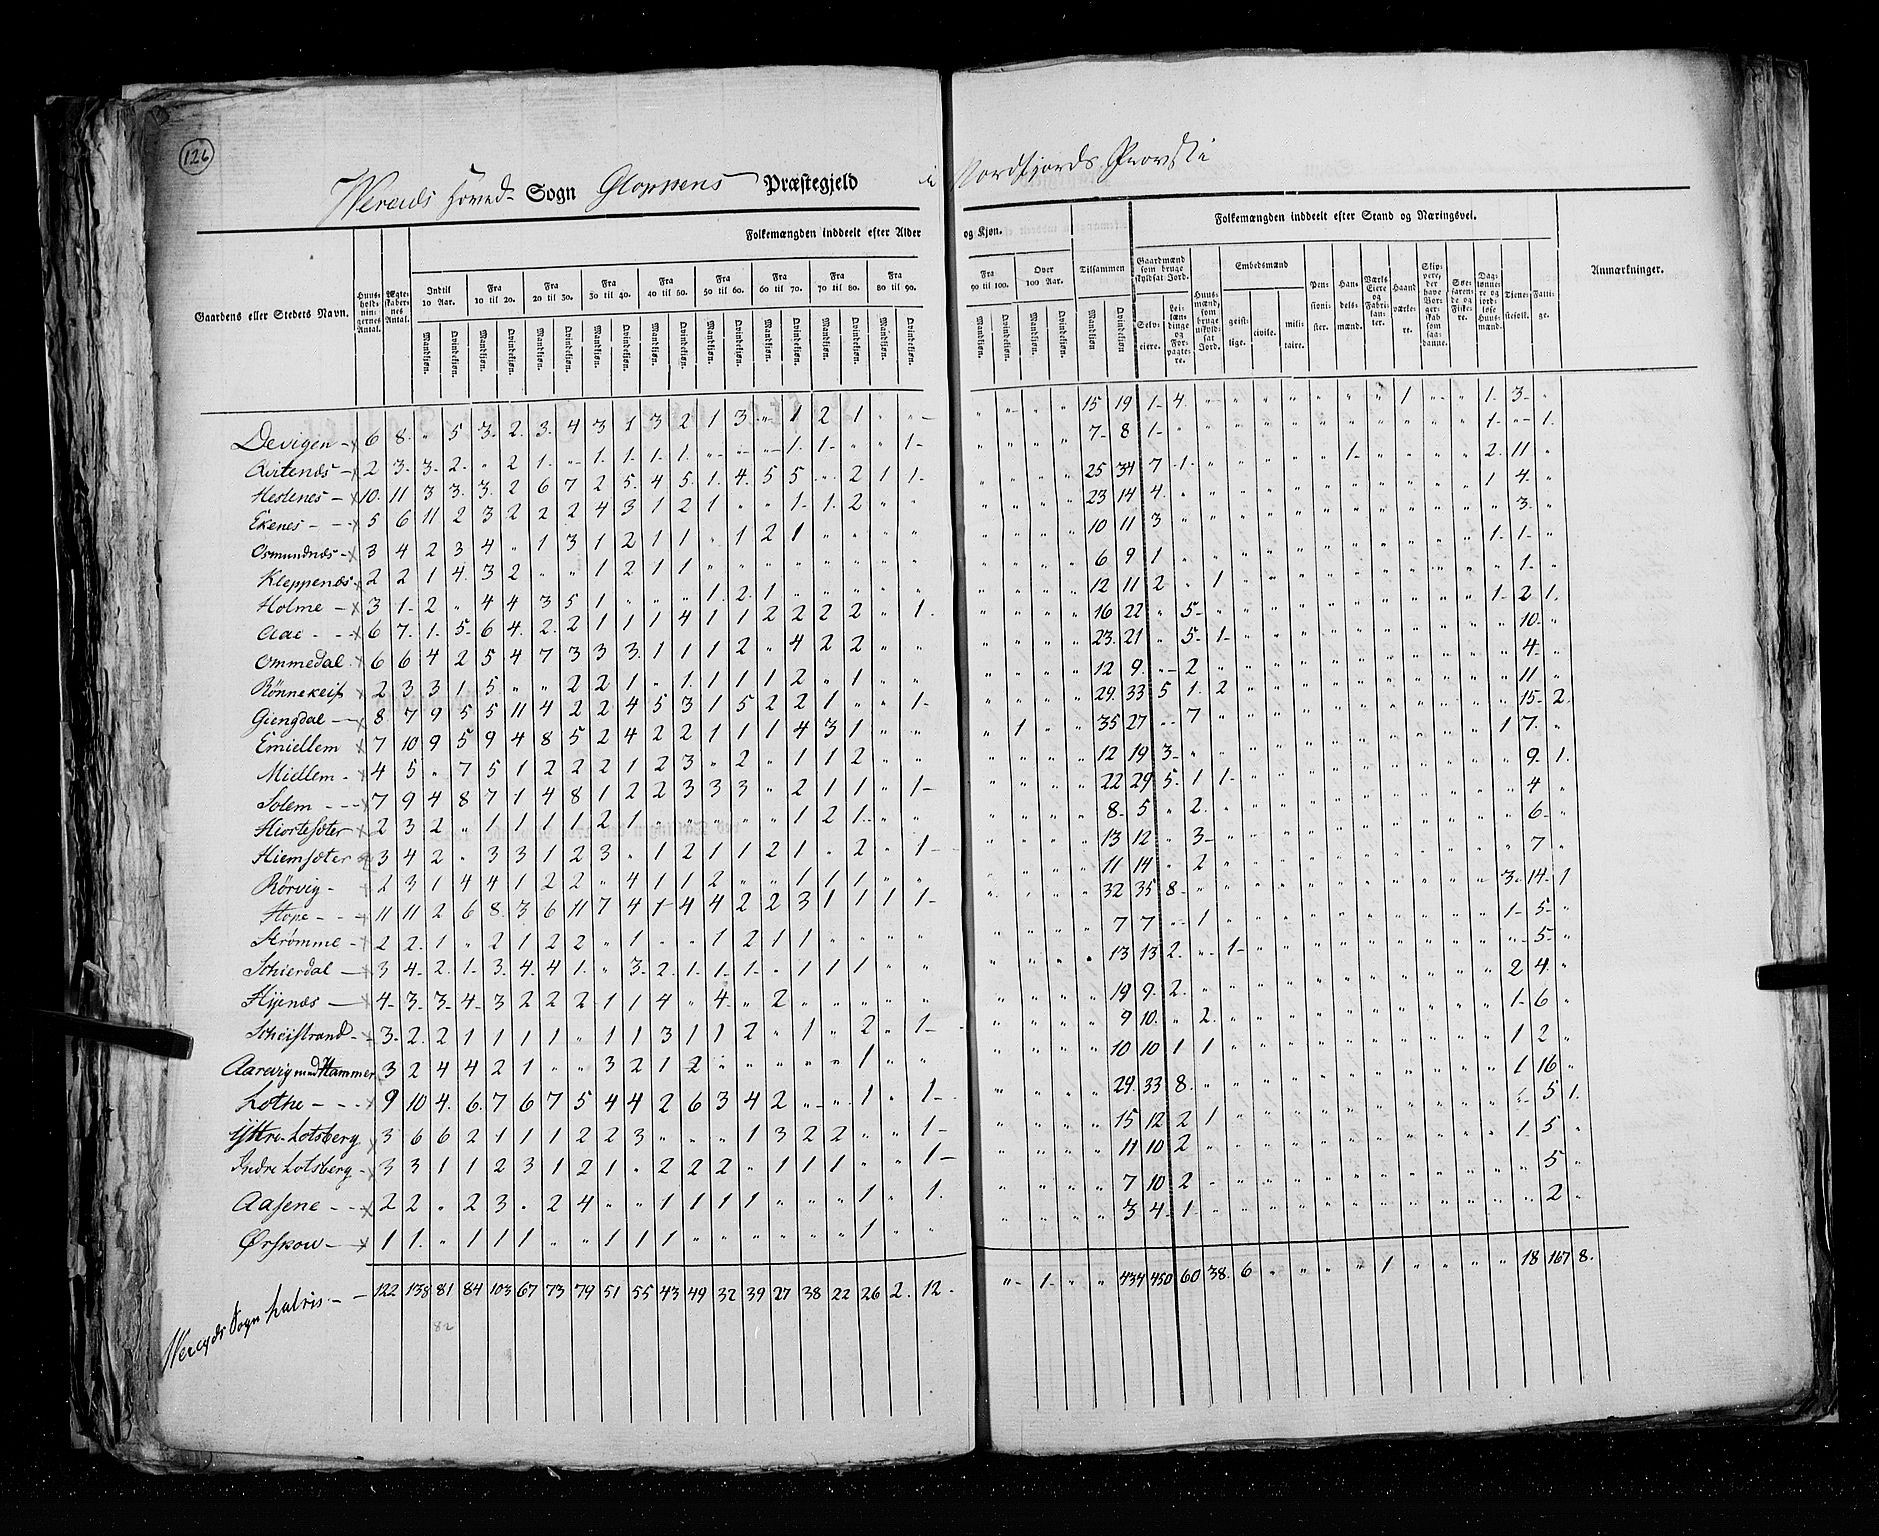 126
Hoved- Sogn Gloppens Præstegjeld i Nordfjords Provstie
Gaardens eller Stedets Navn.
Huusholdningernes Antal.
Ægteskabernes Antal.
Folkemængden inddeelt efter Alder og Kjøn.
Indtil 10 Aar. Fra 10 til 20. Fra 20 til 30. Fra 30 til 40. Fra 40 til 50. Fra 50 til 60. Fra 60 til 70. Fra 70 til 80. Fra 80 til 90. Fra 90 til 100. Over 100 Aar. Tilsammen
Mandkjøn. Qvindekjøn.
Folkemængden inddeelt efter Stand og Næringsvei.
Gaardmænd som bruge skyldsat Jord.
Selveiere. Leilændinge og Forpagtere.
Huusmænd, som bruge uskyldsat Jord.
Embedsmænd
geistlige. civile. militaire.
Pensionister.
Handelsmænd.
Værkseiere og Fabrikanter.
Haandværkere.
Skippere, der have Borgerskab som saadanne.
Søefarende og Fiskere.
Daglønnere og jordløse Huusmænd.
Tjenestefolk.
Fattige.
Anmærkninger.
Devigen 6 8 " 5 3 2 3 4 3 1 3 2 1 3 " 1 2 1 " " " " " " 15 19 1 4 " " " " " " " 1 " " 1 3 "
Qvitenæs 2 3 3 2 " 2 1 " 1 1 1 1 " " " 1 1 " " 1 " " " " 7 8 1 " " " " " " " " " " " 1 " 1
Hestenes 10 11 3 3 3 2 6 7 2 5 4 5 1 4 5 5 " 2 1 1 " " " " 25 34 7 1 " " " " " 1 " " " " 2 11 "
Ekenes 5 6 11 2 3 2 2 2 4 3 1 2 1 " " 1 1 2 " " " " " " 23 14 4 " " " " " " " " " " " 1 4 "
Osmundnæs 3 4 2 3 4 " 1 3 1 2 1 1 " 1 2 1 " " " " " " " " 10 11 3 " " " " " " " " " " " " 3 "
Kleppenæs 2 2 1 4 3 2 " " 1 2 1 1 " " " " " " " " " " " " 6 9 1 " " " " " " " " " " " 1 1 "
Holme 3 1 2 " 4 4 3 5 1 " " " 1 2 1 " " " " " " " " " 12 11 2 " 1 " " " " " " " " " " 1 "
Aae 6 7 1 5 6 4 2 2 1 1 1 4 1 1 2 2 2 2 " 1 " " " " 16 22 " 5 " " " " " " " " " " 1 2 1
Ommedal 6 6 4 2 5 4 7 3 3 3 1 1 1 2 " 4 2 2 " " " " " " 23 21 " 5 1 " " " " " " " " " " 10 "
Rönnekeif 2 3 3 1 5 " " 2 2 1 " 1 1 1 1 2 " 1 " " " " " " 12 9 " 2 " " " " " " " " " " " 4 "
Giengdal 8 7 9 5 5 11 4 2 2 4 5 3 1 5 2 2 1 " " 1 " " " " 29 33 5 1 2 " " " " " " " " " " 11 "
Emiellem 7 10 9 5 9 4 8 5 2 4 2 2 1 1 1 4 3 1 " " " 1 " " 35 27 " 7 " " " " " " " " " " " 15 2
Miellem 4 5 " 7 5 1 2 2 2 1 2 3 " 2 " 1 1 2 " " " " " " 12 19 3 " " " " " " " " " " " 1 7 "
Solem 7 9 4 8 7 1 4 8 1 2 2 3 3 3 " 2 1 1 " 1 " " " " 22 29 5 1 1 " " " " " " " " " " 9 1
Hiortesæter 2 3 2 " 1 1 1 1 2 1 " " " " " 1 2 1 " " " " " " 8 5 " 2 " " " " " " " " " " " 4
Hiemsæter 3 4 2 " 3 3 1 2 3 " 1 2 1 1 2 1 " 2 " 1 " " " " 13 12 " 3 " " " " " " " " " " " 6 "
Rörvig 2 3 1 4 4 1 2 2 " 4 1 1 2 " " 1 1 1 " " " " " " 11 14 " 2 " " " " " " " " " " " 7 "
Hope 11 11 2 6 8 3 6 11 7 4 1 4 4 2 2 3 1 1 1 1 " " " " 32 35 8 " " " " " " " " " " " 3 14 1
Strömme 2 2 1 " 2 1 2 2 " 1 " " 1 2 1 1 " " " " " " " " 7 7 " 1 " " " " " " " " " " 1 5 "
Skierdal 3 4 2 1 3 4 4 1 " 3 2 1 1 1 " 1 1 1 " " " " " " 13 13 2 " 1 " " " " " " " " " " 5 "
Hyenæs 4 3 3 4 3 2 2 2 1 1 4 " 4 " 2 " " " " " " " " " 19 9 2 " " " " " " " " " " " 2 4 "
Skeistrand 3 2 2 1 1 1 1 " 1 1 3 1 1 2 " 1 " 2 " 1 " " " " 9 10 " 2 " " " " " " " " " " 1 6 "
Aarevig med Hammer 3 2 4 4 2 1 " " 3 2 1 2 " " " " " 1 " " " " " " 10 10 1 1 " " " " " " " " " " 1 2 "
Lothe 9 10 4 6 7 6 7 5 4 4 2 6 3 4 2 " " 1 " 1 " " " " 29 33 8 " " " " " " " " " " " 1 16 "
Yttre Lotsberg 3 6 6 2 1 1 1 2 2 3 " " " 1 3 2 2 " " 1 " " " " 15 12 2 1 " " " " " " " " " " " 5 1
Indre Lotsberg 3 3 1 1 2 3 1 2 1 " 2 2 2 " 1 1 1 " " 1 " " " " 11 10 2 " " " " " " " " " " " 1 5 "
Aasene 2 2 " 2 3 " 2 4 " " 1 1 1 1 " " " 1 " 1 " " " " 7 10 2 " " " " " " " " " " " " 5 "
Ørskow 1 1 " 1 1 1 " " 1 1 1 " " " " " " 1 " " " " " " 3 4 1 " " " " " " " " " " " " 2 "
Sogn 122 138 81 84 103 67 73 79 51 55 43 49 32 39 27 38 22 26 2 12 " 1 " " 434 450 60 38 6 " " " " " 1 " " " 18 167 8
82